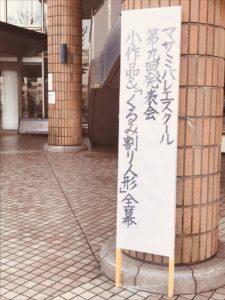 マサミバレエスクール
第九回発表会
小作品&「くるみ割り人形」全幕